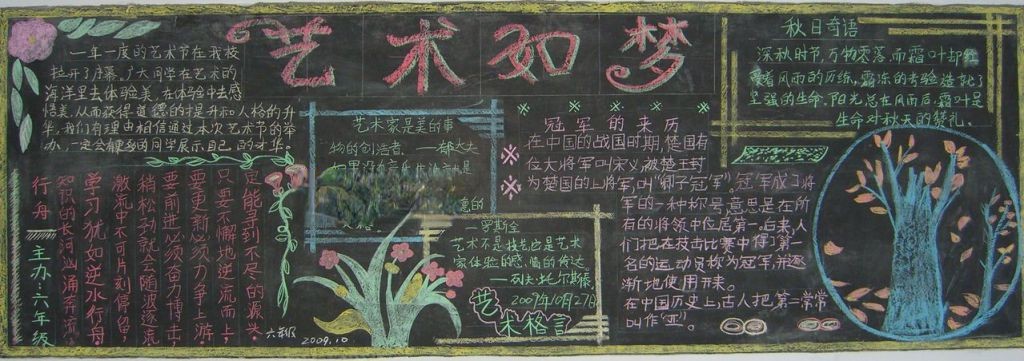 艺术如梦
一年一度的艺术节在我校
拉开了序幕。广大同学在艺术的
海洋里去体验美,在体验中去感
悟美,从而获得道德的提升和人格的升
华,我们有理由相信通过本次艺术节的举
办,一定会能到的同学展示自己的才华。
艺术家是美的事
物的创造者。
如果没有
意的
罗斯金
艺术不是技艺,它是艺术
家体验的感情的传达
列夫·托尔斯泰
2009年10月27日
艺术格言
冠军的来历
在中国的战国时期,楚国有
位大将军叫宋义,被楚王封
为楚国的上将军,叫“卿子冠军”。冠军成了将
军的一种称号,意思是在所
有的将领中位居第一。后来,人
们把在技击比赛中得了第一
名的运动员称为冠军,并逐
渐地使用开来。
在中国历史上,古人把第二常常
叫作“亚”。
秋日奇语
深秋时节,万物零落,而霜叶却
着风雨的历练,霜冻的考验造就了
坚强的生命。阳光总在风雨后,霜叶是
生命对秋天的赞礼。
是能寻到不尽的源头。
只要不懈地逆流而上,
要更新必须力争上游
要前进必须奋力博击;
稍松劲就会随波逐流
激流中不可片刻停留,
学习犹如逆水行舟
知识的长河汹涌奔流,
行舟
主办:六年级
六年级
2009.10